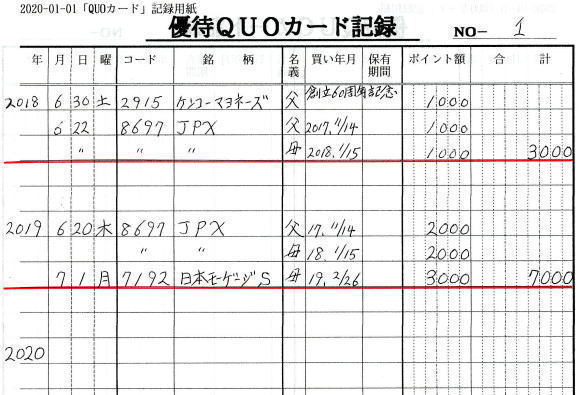 2020-01-01「QUOカード」記録用紙
優待QUOカード記録 NO- 1
年 月 日 曜 コード 銘柄 名義 買い年月 保有期間 ポイント額 合計
2018 6 30 土 2915 ケンコーマヨネーズ 父 創立60周年記念 1000
6 22 8697 JPX 父 2017.11/14 1000
〃 〃 〃 母 2018.1/15 1000 3000
2019 6 20 木 8697 JPX 父 17.11/14 2000
〃 〃 母 18.1/15 2000
7 1 月 7192 日本モーゲージS 母 19.2/26 3000 7000
2020